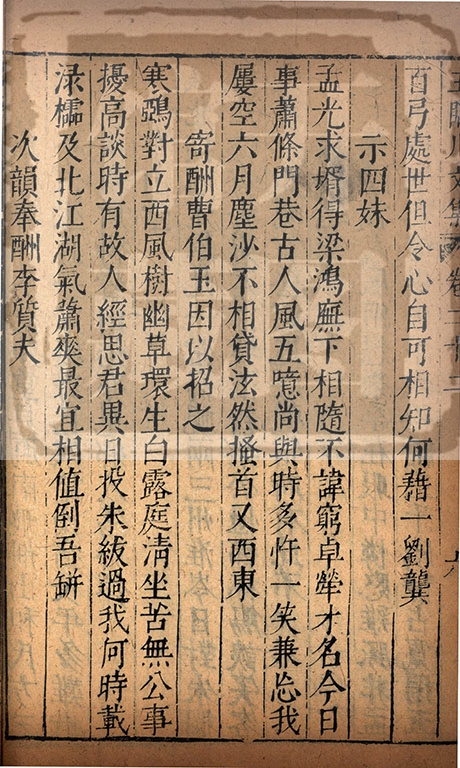 王臨川文集 卷二十二
百弓處世但令心自可相知何藉一劉龔
示四妹
孟光求壻得梁鴻廡下相隨不諱窮卓犖才名今日
事蕭條門巷古人風五噫尚與時多忤一笑兼忘我
屢空六月塵沙不相貸泫然搔首又西東
寄酬曹伯玉因以招之
寒鵶對立西風樹幽草環生白露庭清坐苦無公事
擾高談時有故人經思君異日投朱紱過我何時載
淥檽及北江湖氣蕭爽最宜相值倒吾缾
次韻奉酬李質夫